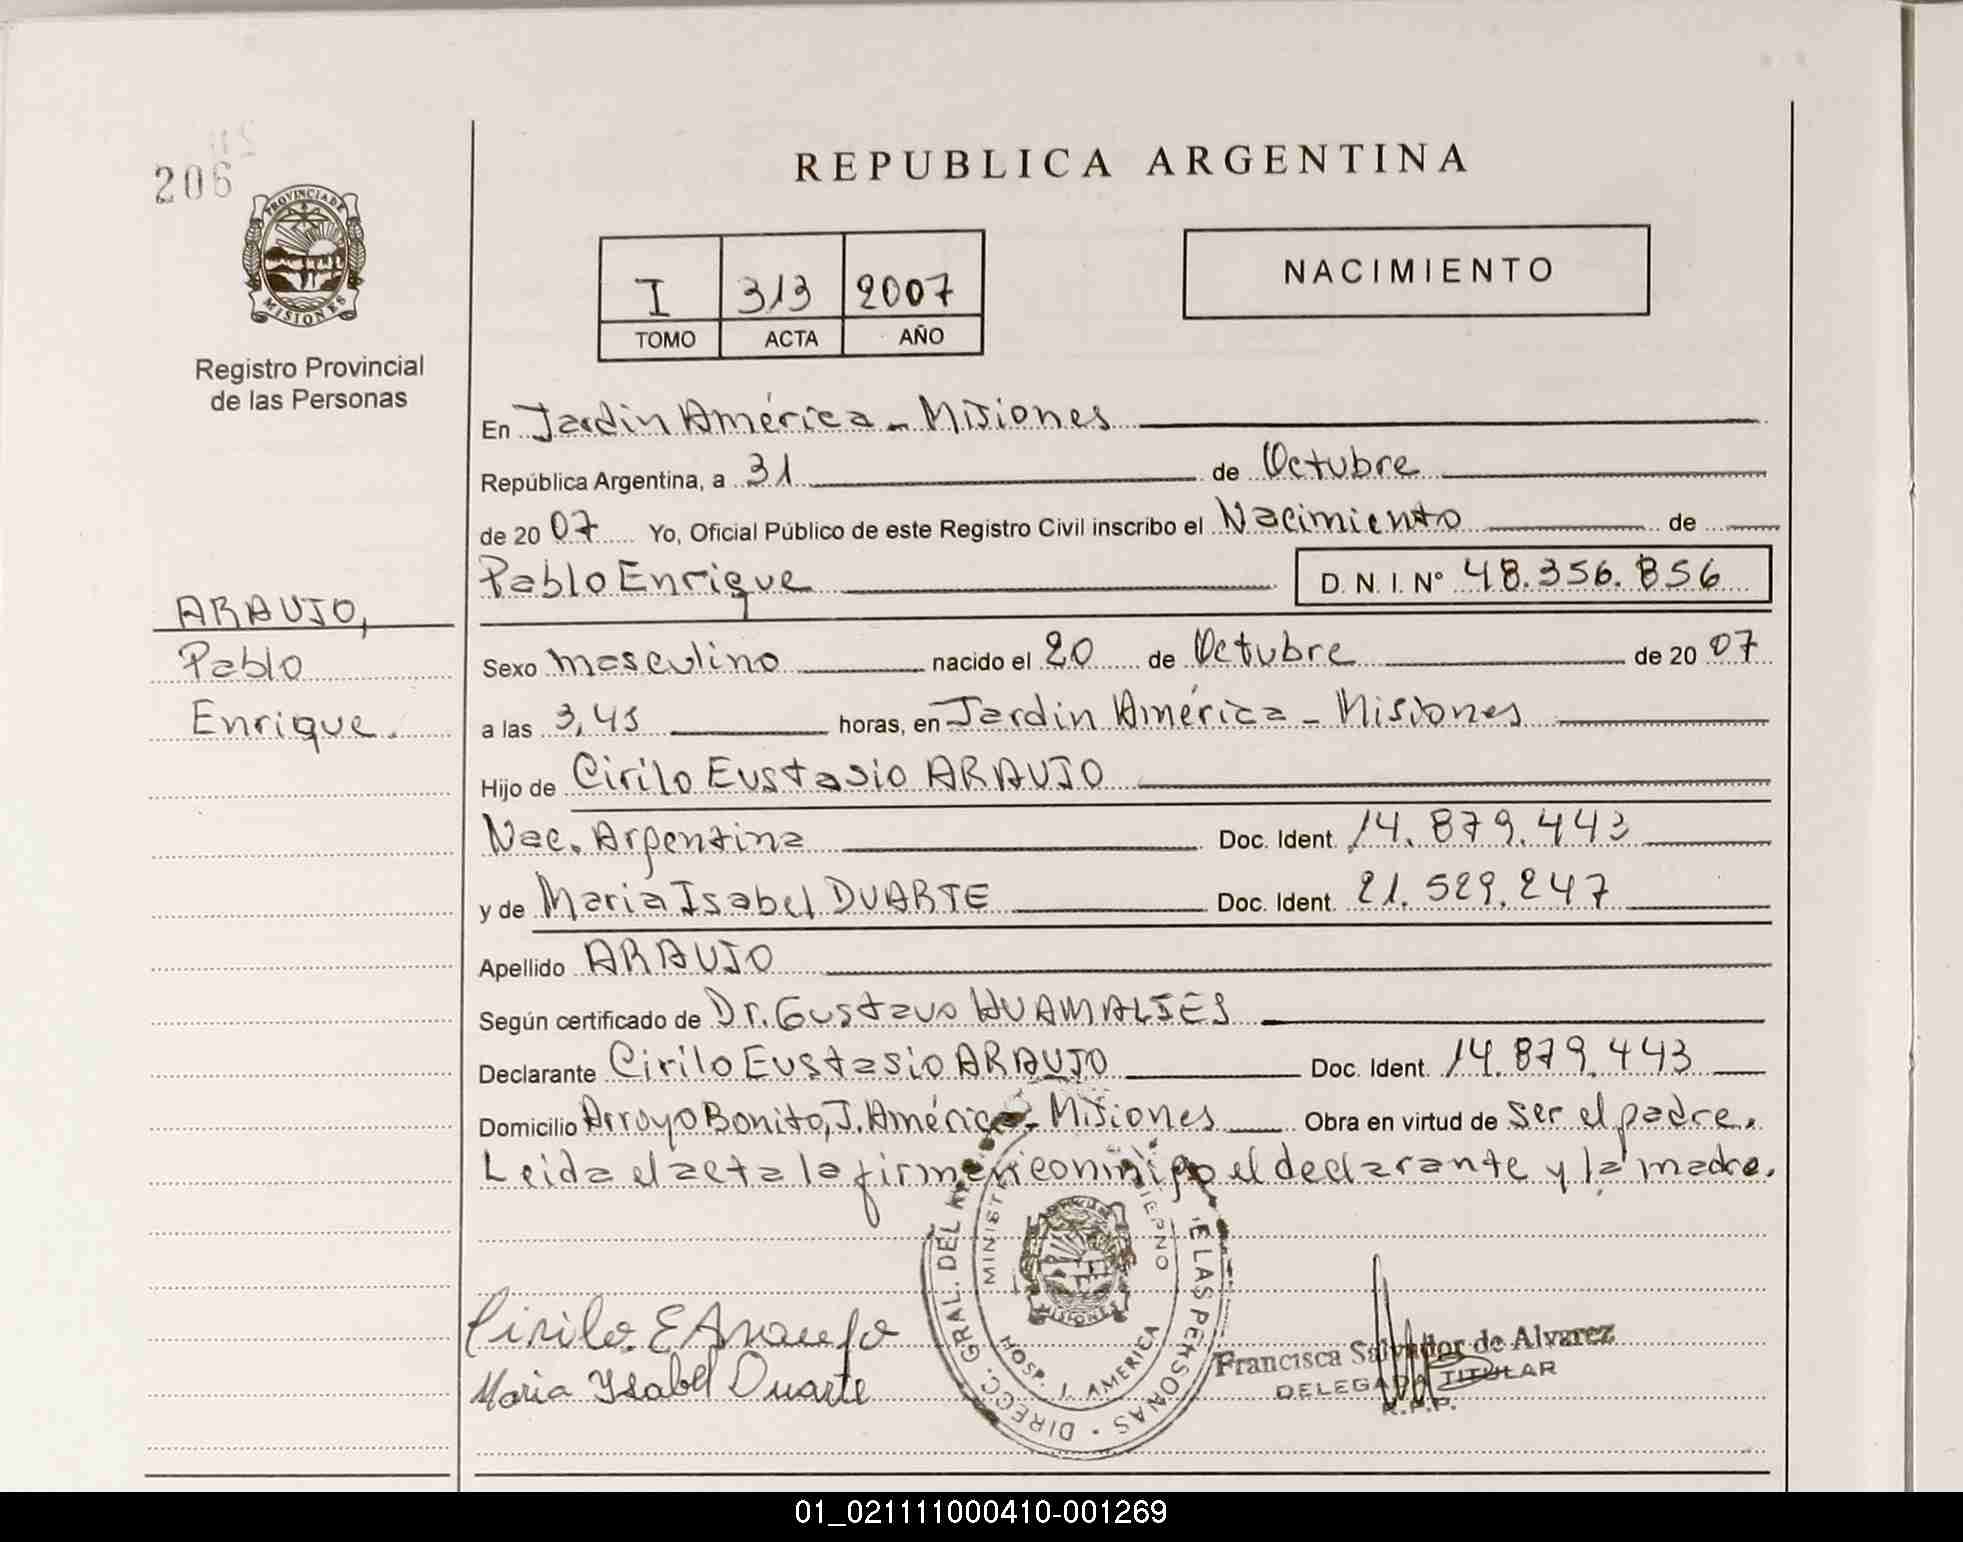 206
REPUBLICA ARGENTINA
PROVINCIA DE MISIONES
Registro Provincial
de las Personas
I 313 2007
TOMO ACTA AÑO
NACIMIENTO
En Jardín América - Misiones
República Argentina, a 31 de Octubre
de 2007 Yo, Oficial Público de este Registro Civil inscribo el Nacimiento de
Pablo Enrique D. N. I. N° 48.356.856
ARAUJO,
Pablo
Enrique.
Sexo masculino nacido el 20 de Octubre de 2007
a las 3,45 horas, en Jardín América - Misiones
Hijo de Cirilo Eustasio ARAUJO
Nac. Argentina Doc. Ident. 14.879.443
y de Maria Isabel DUARTE Doc. Ident. 21.529.247
Apellido ARAUJO
Según certificado de Dr. Gustavo HUAMALIES
Declarante Cirilo Eustasio ARAUJO Doc. Ident. 14.879.443
Domicilio Arroyo Bonito, J. América - Misiones Obra en virtud de ser el padre.
Leida el acta la firman conmigo el declarante y la madre.
Cirilo. E Araujo
Maria Ysabel Duarte
DIRECC. GRAL. DEL E LAS PERSONAS
MINIST IERNO
HOSP. J. AMERICA
MISIONES
Francisca Salvador de Alvarez
DELEGADA TITULAR
R.P.P.
01_021111000410-001269